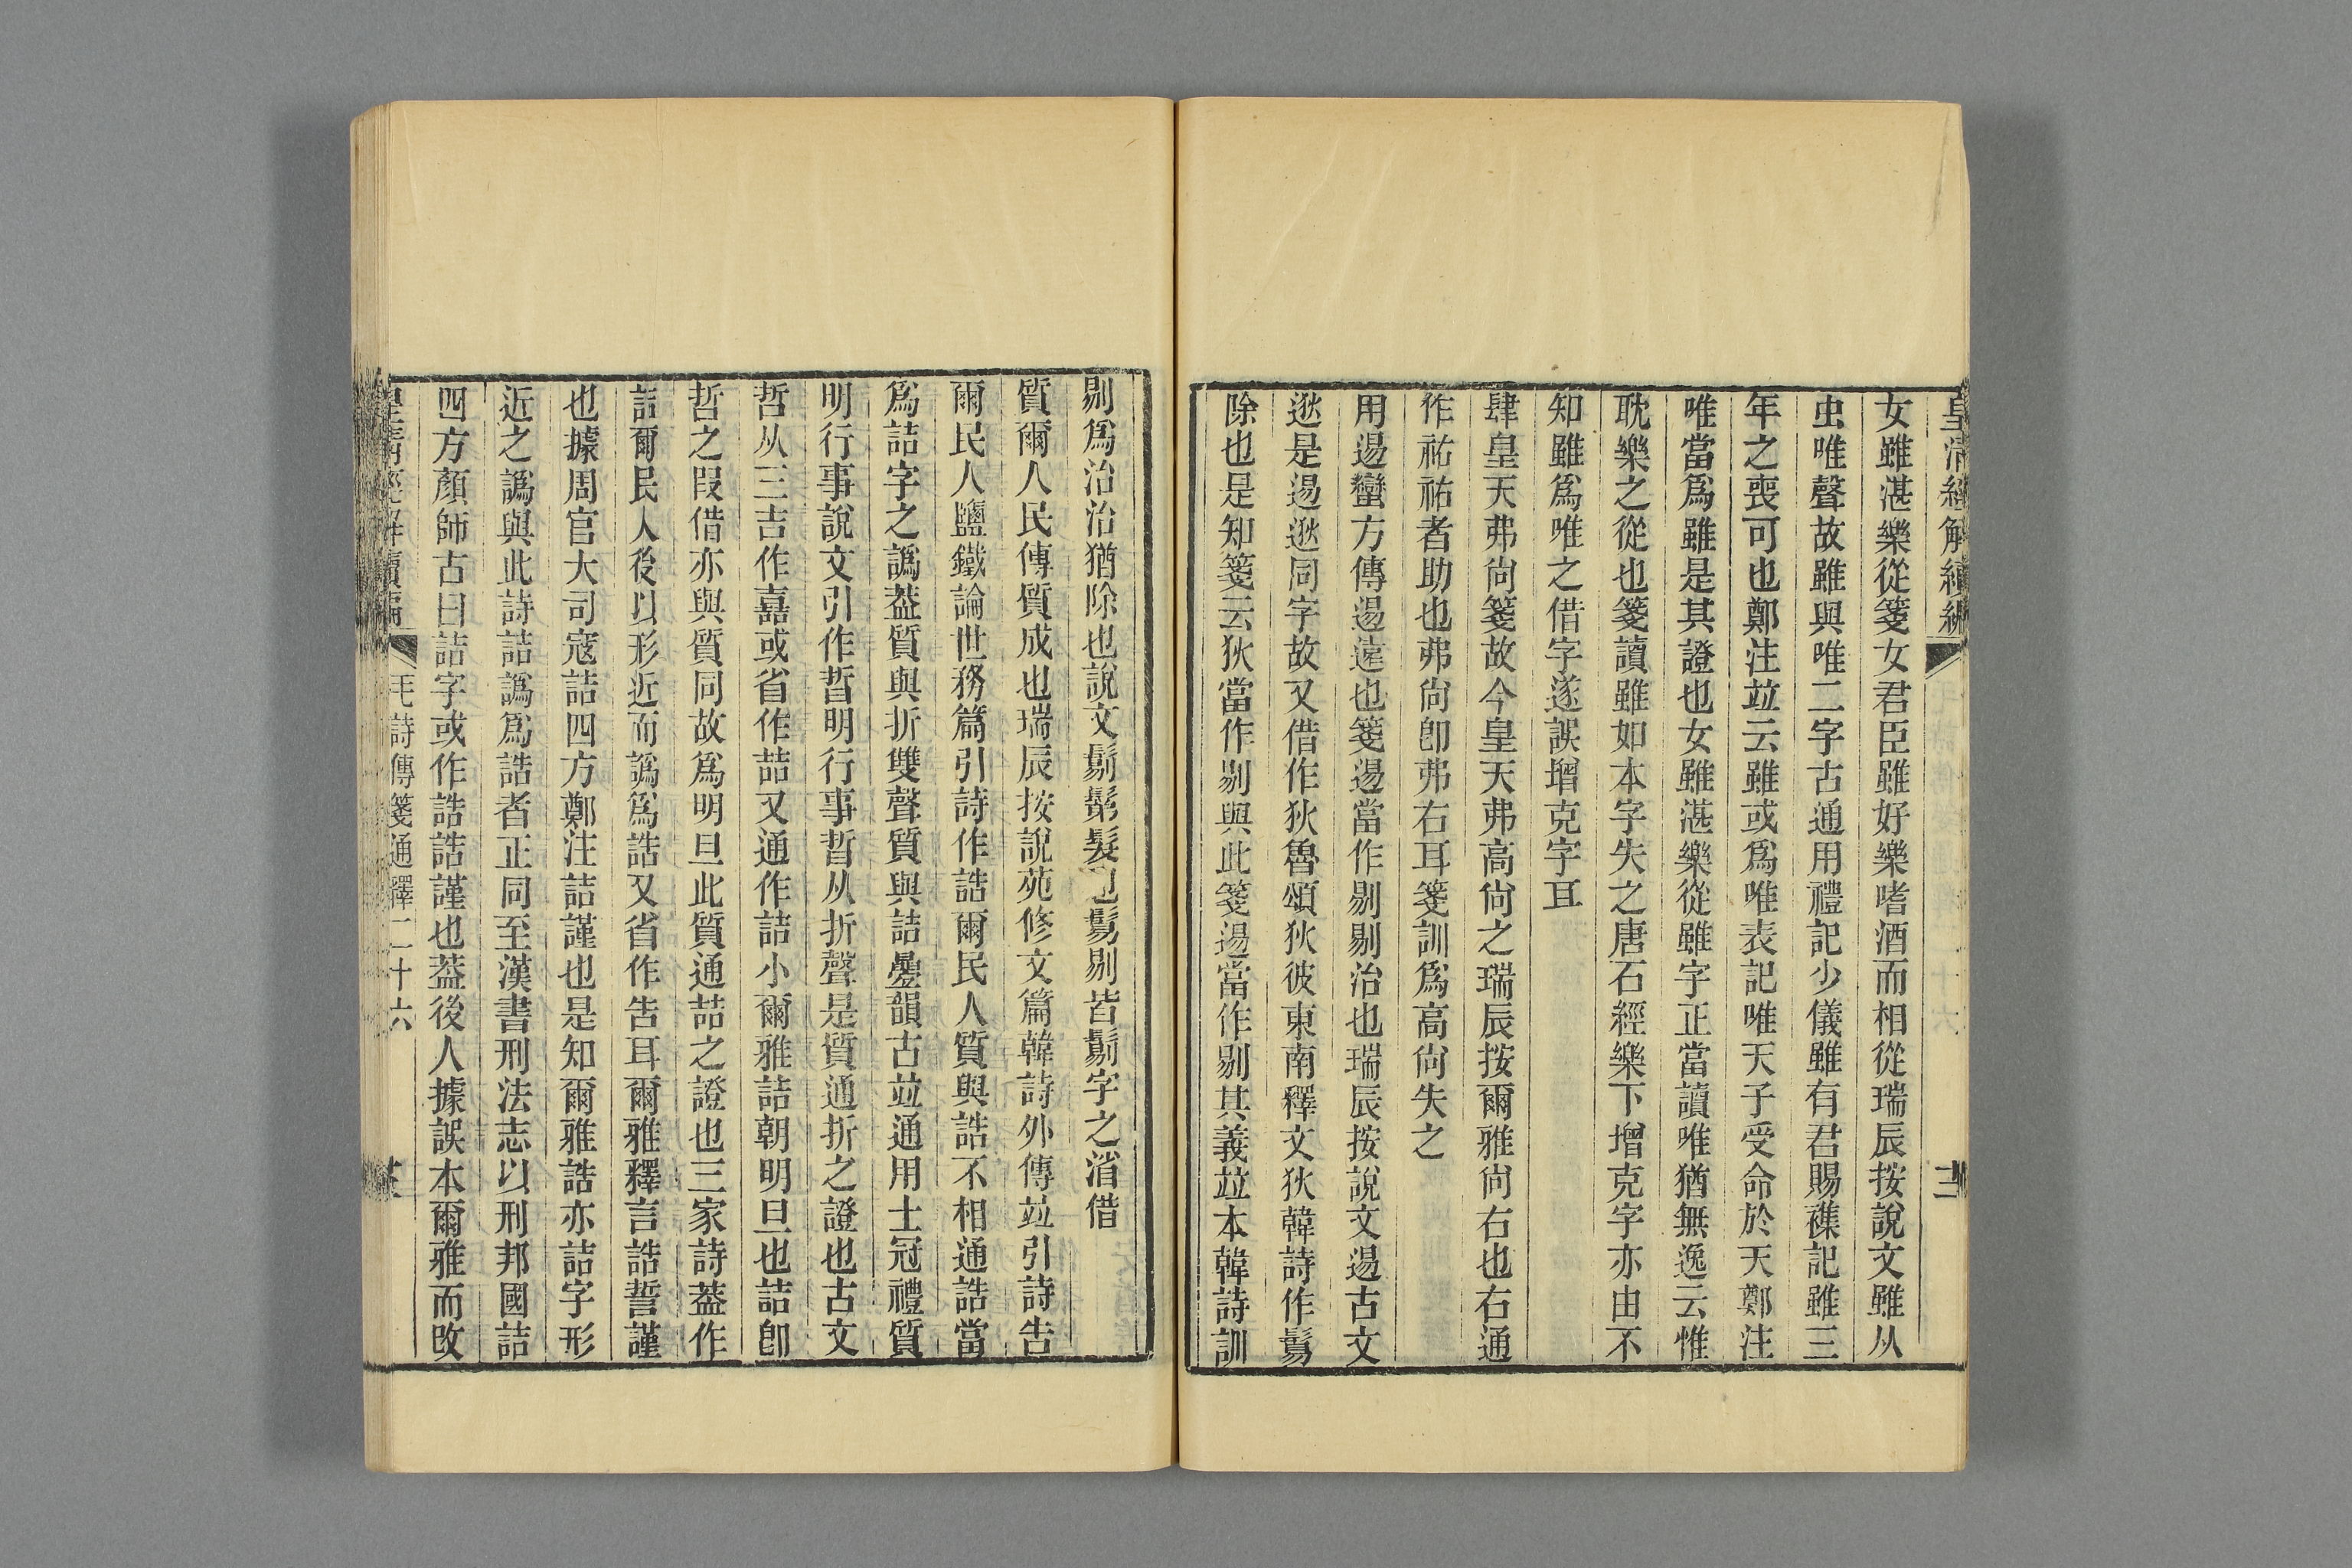 皇清經解續編
女雖湛樂從箋女君臣雖好樂嗜酒而相從瑞辰按說文雖从
虫唯聲故雖與唯二字古通用禮記少儀雖有君賜襍記雖三
年之喪可也鄭注竝云雖或爲唯表記唯天子受命於天鄭注
唯當爲雖是其證也女雖湛樂從雖字正當讀唯猶無逸云惟
耽樂之從也箋讀雖如本字失之唐石經樂下增克字亦由不
知雖爲唯之借字遂誤增克字耳
肆皇天弗尙箋故今皇天弗高尙之瑞辰按爾雅尙右也右通
作祐祐者助也弗尙卽弗右耳箋訓爲高尙失之
用逷蠻方傳逷遠也箋逷當作剔剔治也瑞辰按說文逷古文
逖是逷逖同字故又借作狄魯頌狄彼東南釋文狄韓詩作鬄
除也是知箋云狄當作剔與此箋逷當作剔其義竝本韓詩訓
剔爲治治猶除也說文鬀鬄髮也鬄剔皆鬀字之渻借
質爾人民傳質成也瑞辰按說苑修文篇韓詩外傳竝引詩告
爾民人鹽鐵論世務篇引詩作誥爾民人質與誥不相通誥當
爲詰字之譌葢質與折雙聲質與詰曡韻古竝通用士冠禮質
明行事說文引作晢明行事晢从折聲是質通折之證也古文
哲从三吉作嚞或省作喆又通作詰小爾雅詰朝明旦也詰卽
哲之叚借亦與質同故爲明旦此質通喆之證也三家詩葢作
詰爾民人後以形近而譌爲誥又省作告耳爾雅釋言誥誓謹
也據周官大司寇詰四方鄭注詰謹也是知爾雅誥亦詰字形
近之譌與此詩詰譌爲誥者正同至漢書刑法志以刑邦國詰
四方顏師古曰詰字或作誥誥謹也葢後人據誤本爾雅而改
皇清經解續編 毛詩傳箋通釋二十六